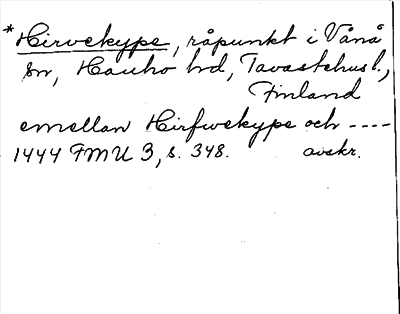 *Hirvekype, råpunkt i Vånå
sn, Hauho hd, Tavastehus l.,
Finland
emellan Hirfwekype och ----
1444 FMU 3, s. 348. avskr.